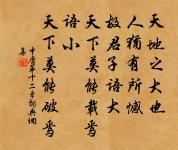 天地之大也
人猶有所憾
故君子語大
天下莫能載焉
語小
天下莫能破焉
中庸第十二章詞典網
集